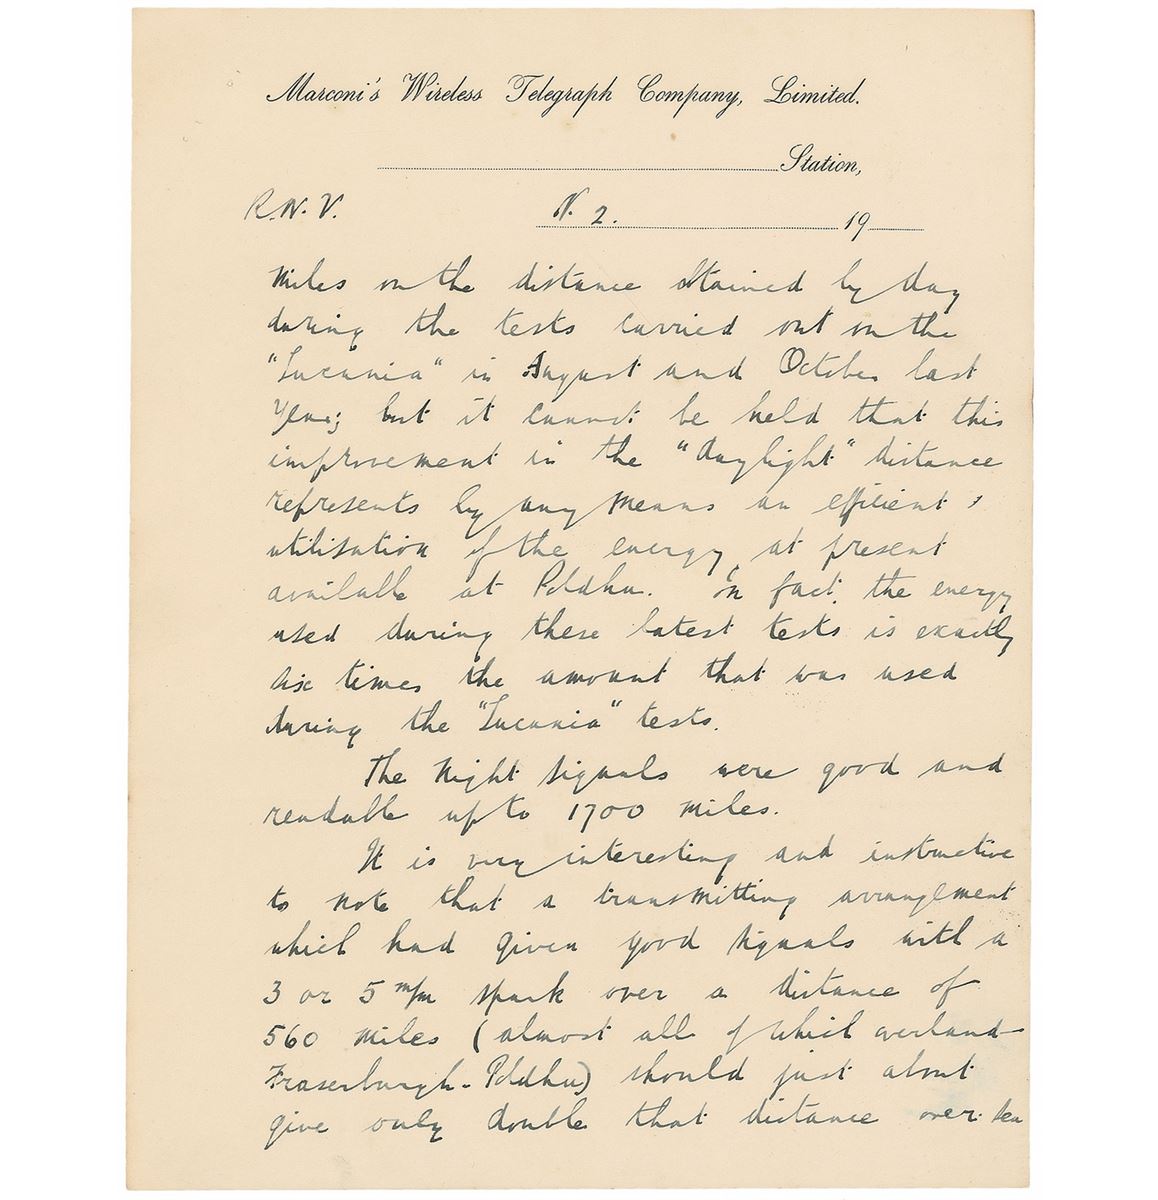 Marconi's Wireless Telegraph Company, Limited.
Station,
R.N.V.
N. 2. 19
miles on the distance obtained by day
during the tests carried out on the
"Lucania" in August and October last
year; but it cannot be held that this
improvement in the "daylight" distance
represents by any means an efficient
utilisation of the energy at present
available at Poldhu. In fact, the energy
used during these latest tests is exactly
six times the amount that was used
during the "Lucania" tests.
The night signals were good and
readable up to 1700 miles.
It is very interesting and instructive
to note that a transmitting arrangement
which had given good signals with a
3 or 5 m/m spark over a distance of
560 miles (almost all of which overland
Fraserburgh - Poldhu) should just about
give only double that distance over sea